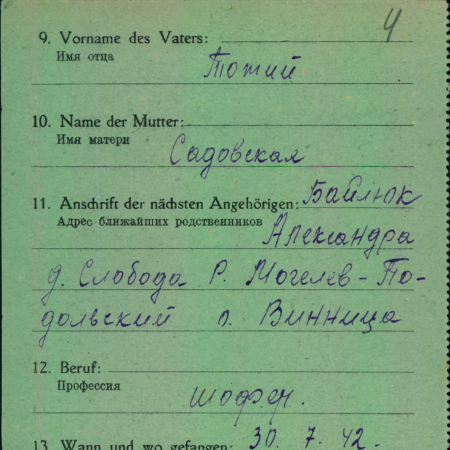 4
9. Vorname des Vaters:
Имя отца
Тожий
10. Name der Mutter:
Имя матери
Садовская
11. Anschrift der nächsten Angehörigen: Байлюк
Адрес ближайших родственников
Александра
д. Слобода Р. Могелев-По-
дольский о. Винница
12. Beruf:
Профессия
шофер.
13. Wann und wo gefangen: 30. 7. 42.